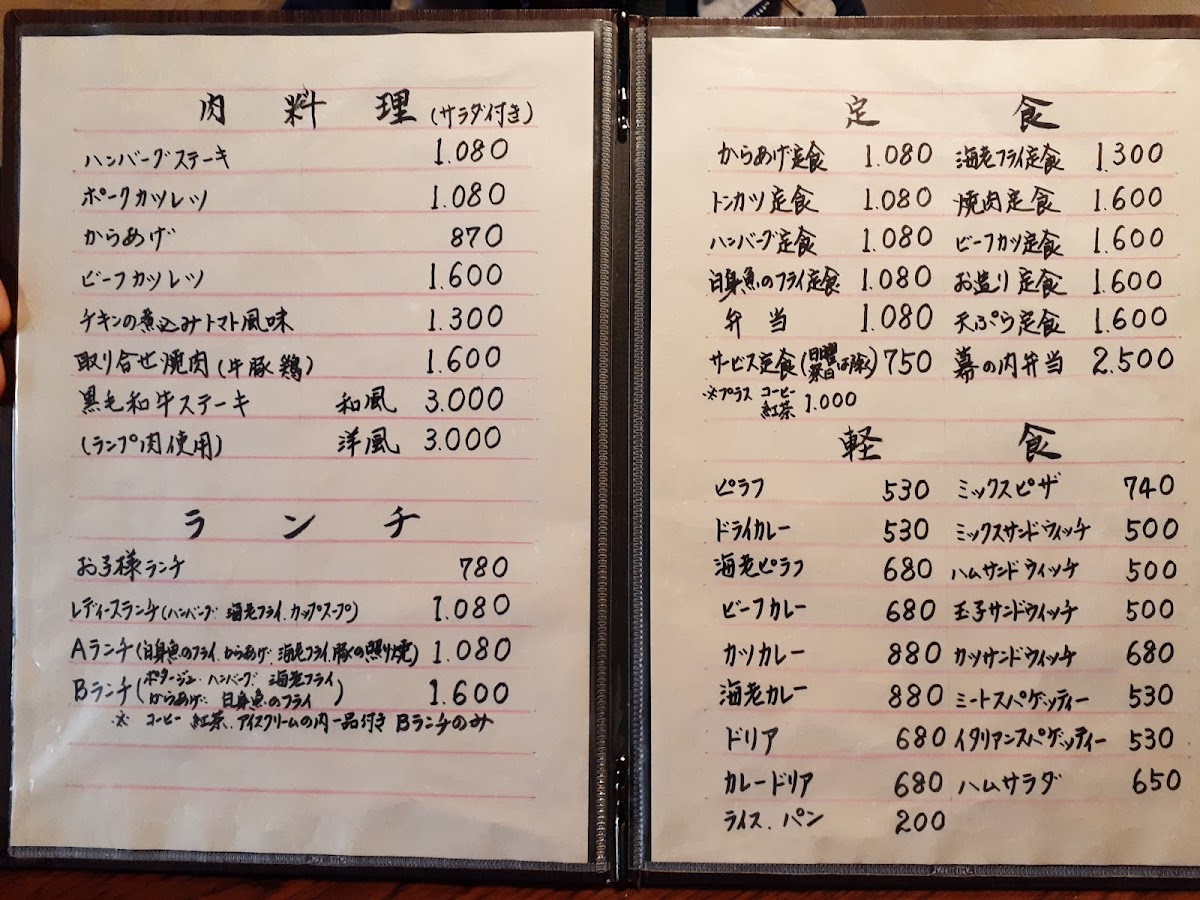 肉料理(サラダ付き)
ハンバーグステーキ 1.080
ポークカツレツ 1.080
からあげ 870
ビーフカツレツ 1.600
チキンの煮込みトマト風味 1.300
取り合せ焼肉(牛豚鶏) 1.600
黒毛和牛ステーキ 和風 3.000
(ランプ肉使用) 洋風 3.000
ランチ
お子様ランチ 780
レディースランチ(ハンバーグ.海老フライ.カップスープ) 1.080
Aランチ(白身魚のフライ.からあげ.海老フライ.豚の照り焼) 1.080
Bランチ(ポタージュ.ハンバーグ.海老フライ
からあげ.白身魚のフライ) 1.600
※ コーヒー 紅茶.アイスクリームの内一品付き Bランチのみ
定食
からあげ定食 1.080 海老フライ定食 1.300
トンカツ定食 1.080 焼肉定食 1.600
ハンバーグ定食 1.080 ビーフカツ定食 1.600
白身魚のフライ定食 1.080 お造り定食 1.600
弁当 1.080 天ぷら定食 1.600
サービス定食(日曜祭日は除く) 750 幕の内弁当 2.500
※プラス コーヒー
紅茶 1.000
軽食
ピラフ 530 ミックスピザ 740
ドライカレー 530 ミックスサンドウィッチ 500
海老ピラフ 680 ハムサンドウィッチ 500
ビーフカレー 680 玉子サンドウィッチ 500
カツカレー 880 カツサンドウィッチ 680
海老カレー 880 ミートスパゲッティー 530
ドリア 680 イタリアンスパゲッティー 530
カレードリア 680 ハムサラダ 650
ライス.パン 200